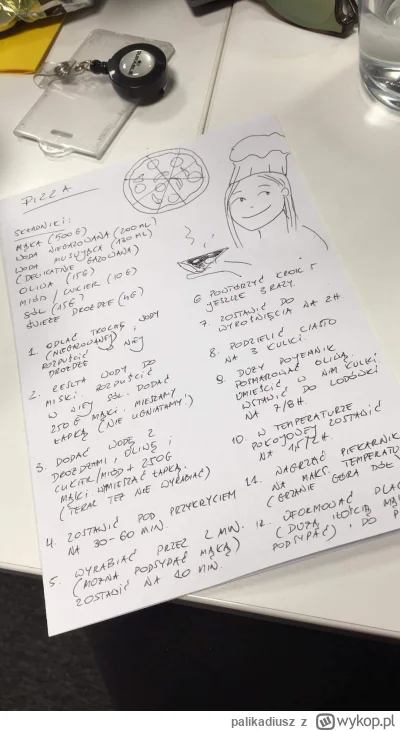 PIZZA
SKŁADNIKI:
MĄKA (500G)
WODA NIEGAZOWANA (200ML)
WODA MUSUJĄCA (130ML)
(DELIKATNIE GAZOWANA)
OLIWA (15G)
MIÓD / CUKIER (10G)
SÓL (15G)
ŚWIEŻE DROŻDŻE (4G)
1. ODLAĆ TROCHĘ WODY
(NIEGAZOWANEJ) I
ROZPUŚCIĆ W NIEJ
DROŻDŻE
2. RESZTA WODY DO
MISKI. ROZPUŚCIĆ
W NIEJ SÓL. DODAĆ
250G MĄKI. MIESZAMY
ŁAPKĄ (NIE UGNIATAMY!)
3. DODAĆ WODĘ Z
DROŻDŻAMI, OLIWĘ I
CUKIER/MIÓD + 250G
MĄKI. WYMIESZAĆ ŁAPKĄ.
(TERAZ TEŻ NIE WYRABIAĆ)
4. ZOSTAWIĆ POD PRZYKRYCIEM
NA 30-60 MIN.
5. WYRABIAĆ PRZEZ 2 MIN.
(MOŻNA PODSYPAĆ MĄKĄ)
ZOSTAWIĆ NA 10 MIN.
6. POWTÓRZYĆ KROK 5
JESZCZE 3 RAZY.
7. ZOSTAWIĆ DO
WYROŚNIĘCIA NA 2H
8. PODZIELIĆ CIASTO
NA 3 KULKI.
9. DUŻY POJEMNIK
POSMAROWAĆ OLIWĄ.
UMIEŚCIĆ W NIM KULKI
WSTAWIĆ DO LODÓWKI
NA 7/8H.
10. W TEMPERATURZE
POKOJOWEJ ZOSTAWIĆ
NA 1H/2H.
11. NAGRZAĆ PIEKARNIK
NA MAKS. TEMPERATU
(GRZANIE GÓRA DÓŁ
12. UFORMOWAĆ PLAC
(DUŻĄ ILOŚCIĄ MĄ
PODSYPAĆ), DO P
palikadiusz z wykop.pl